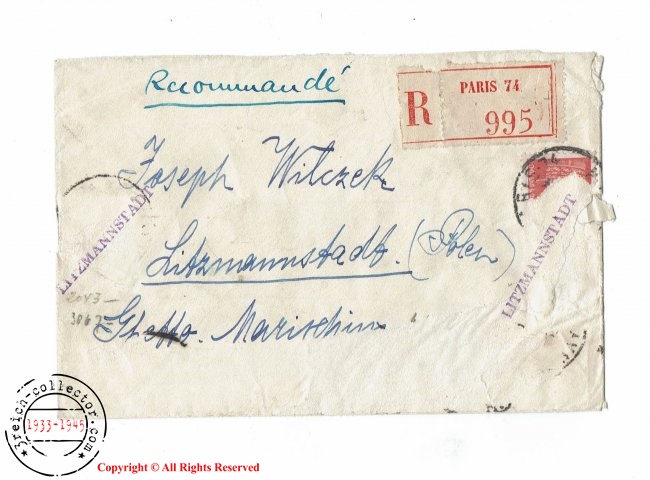 Recommandé
R PARIS 74
995
Joseph Witczek
LITZMANNSTADT
LITZMANNSTADT
Litzmannstadt. (Polen)
2043 -
Ghetto. Marischin
3reich-collector.com
1933-1945
Copyright © All Rights Reserved